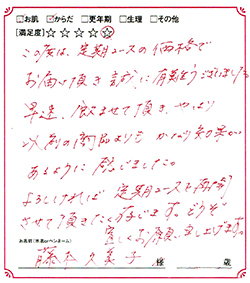 □お肌 ☑からだ □更年期 □生理 □その他
[満足度]☆ ☆ ☆ ☆ ☆
この度は、定期コースの価格で
お届け頂き 誠に有難うございました
早速、飲ませて頂き、やはり
以前の商品よりも かなり効果が
あるように 感じました。
よろしければ 定期コースを継続
させて頂きたく存じます。どうぞ
宜しくお願い申し上げます。
お名前(本名orペンネーム)
藤本 久美子 様 歳